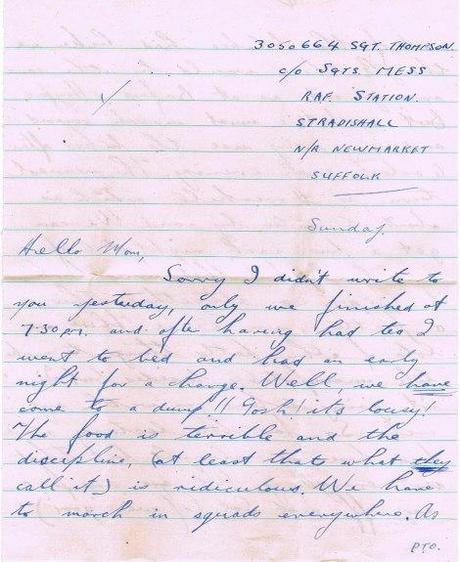 3050664 SGT. THOMPSON.
c/o SGTS. MESS
RAF. STATION.
STRADISHALL
N/R NEWMARKET
SUFFOLK
Sunday.
Hello Mom,
Sorry I didn't write to
you yesterday, only we finished at
7.30pm. and after having had tea I
went to bed and had an early
night for a change. Well, we have
come to a dump!! Gosh! it's lousy!
The food is terrible and the
discipline, (at least thats what they
call it) is ridiculous. We have
to march in squads everywhere. As
PTO.